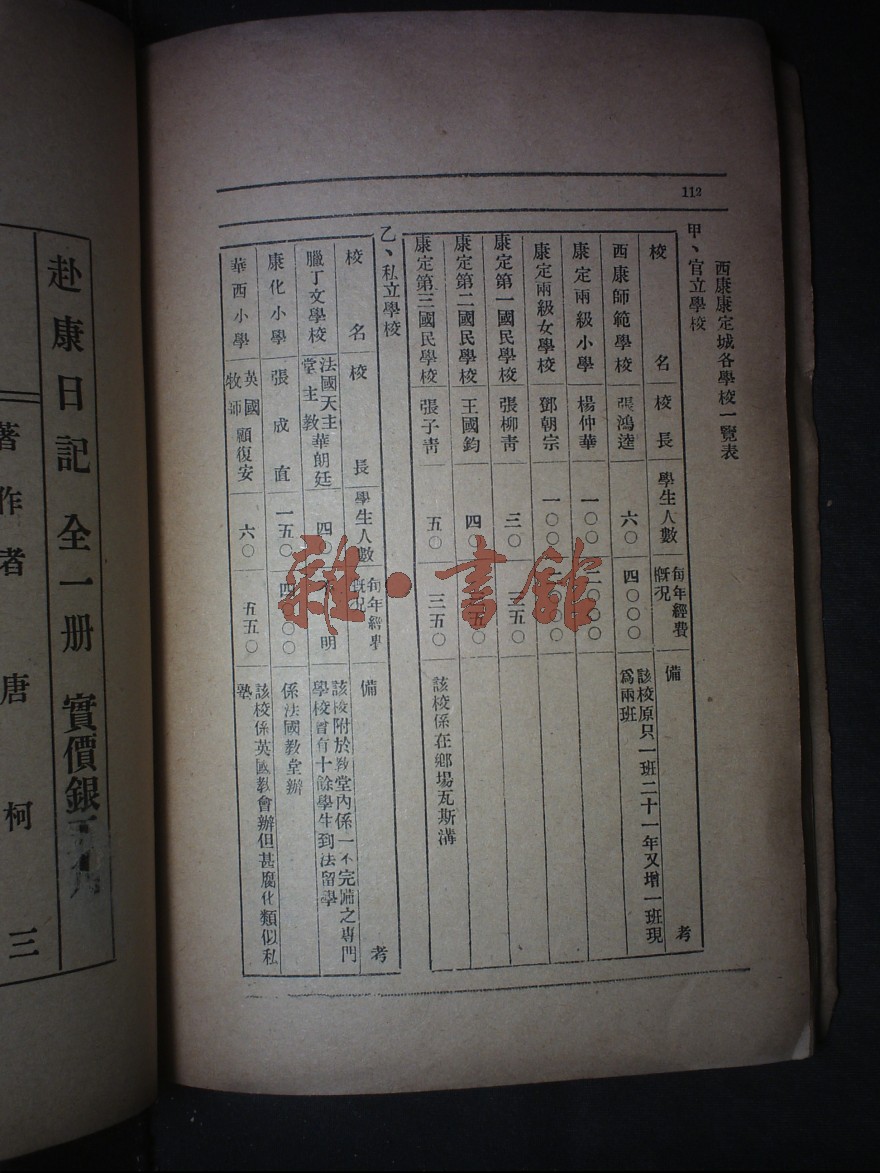 112
西康康定城各學校一覽表
甲、官立學校
校名 校長 學生人數 每年經費概況 備考
西康師範學校 張鴻逵 六〇 四〇〇〇 該校原只一班二十一年又增一班現爲兩班
康定兩級小學 楊仲華 一〇〇
康定兩級女學校 鄧朝宗 一〇〇
康定第一國民學校 張柳靑 三〇 三五〇
康定第二國民學校 王國鈞 四〇
康定第三國民學校 張子靑 五〇 三五〇 該校係在鄉場瓦斯溝
乙、私立學校
校名 校長 學生人數 每年經費概況 備考
臘丁文學校 法國天主堂主教華朗廷 四〇 明 該校附於敎堂內係一不完備之專門學校曾有十餘學生到法留學
康化小學 張成直 一五〇 係法國敎堂辦
華西小學 英國牧師顧復安 六〇 五五〇 該校係英國敎會辦但甚腐化類似私塾
赴康日記 全一册 實價銀
著作者 唐柯三
雜·書館